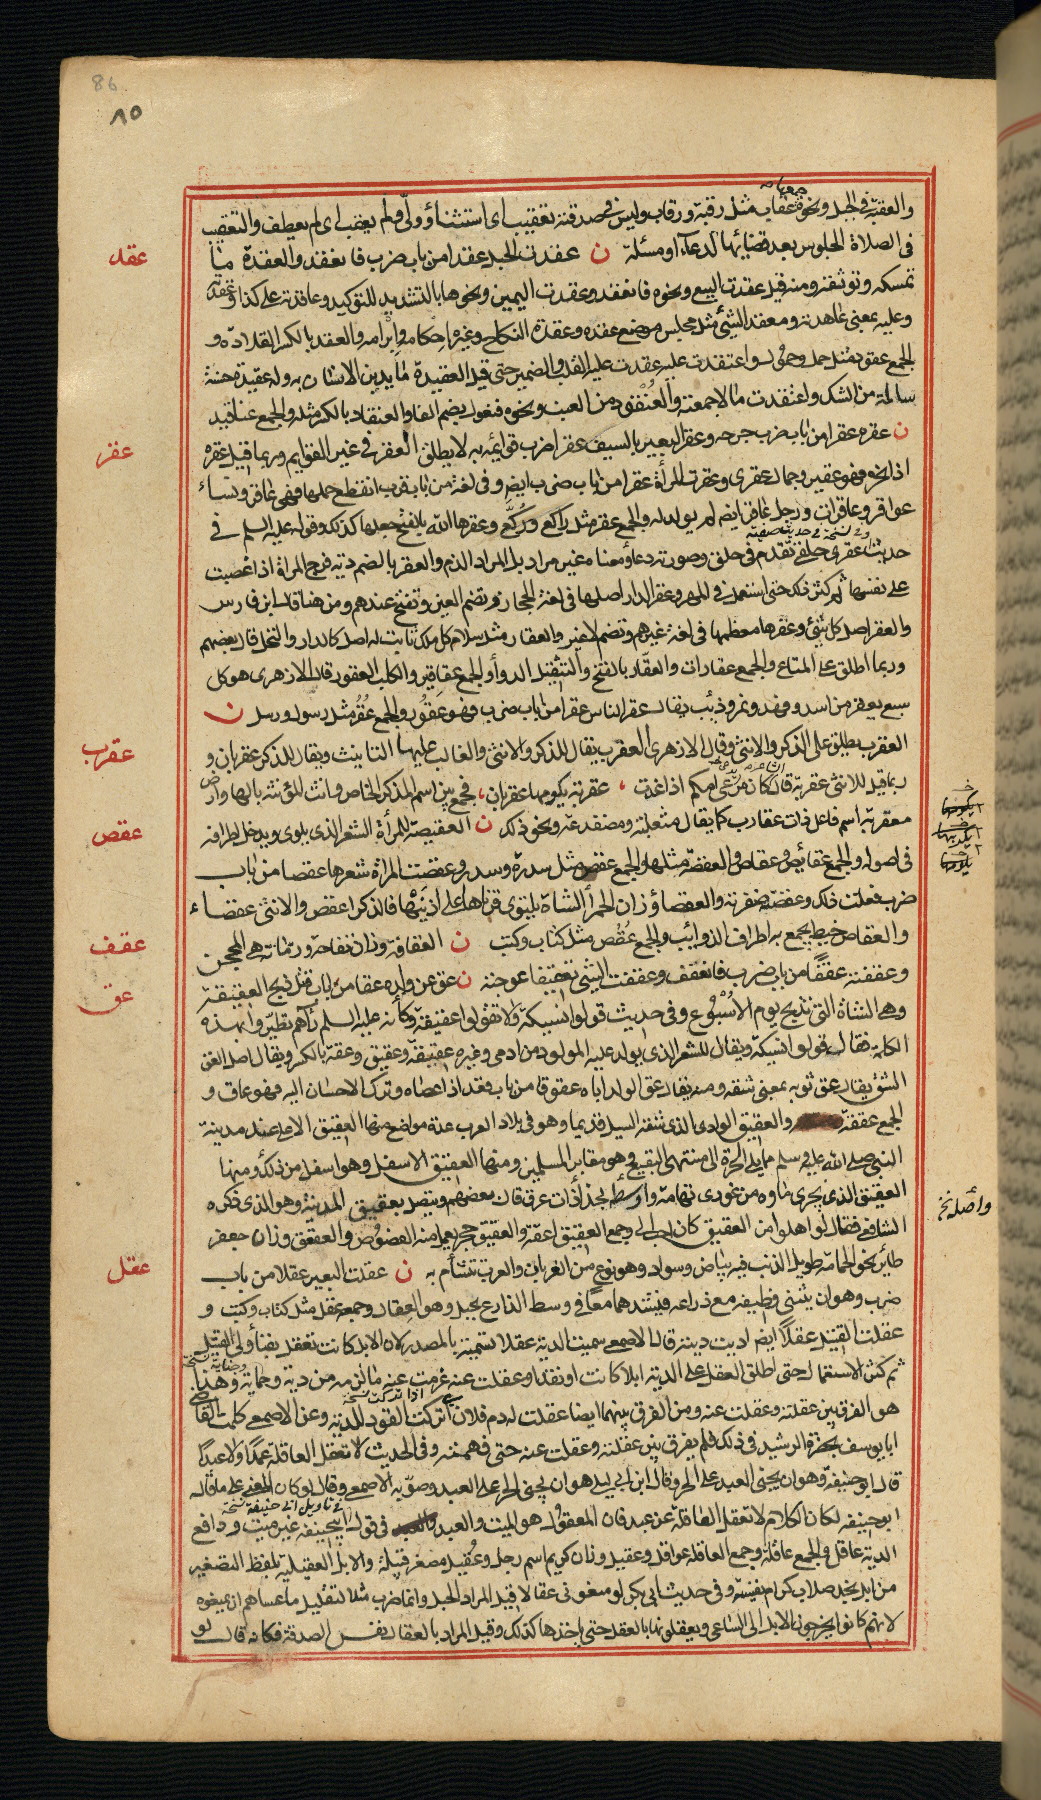 86
٨٥
والعقبة في الجبل ونحوه جمعها عقاب مثل رقبة ورقاب وليس في صدقته تعقيب اى استثناء وولّى ولم يعقب اى لم يعطف والتعقيب
في الصلاة الجلوس بعد قضائها لدعاء او مسئلة ن عقدت الحبل عقدا من باب ضرب فانعقد والعقدة ما
عقد
تمسكه وتوثقه ومنه قيل عقدت البيع ونحوه فانعقد وعقدت اليمين ونحوها بالتشديد للتوكيد وعاقدته على كذا وعقدته
وعليه بمعنى عاهدته ومعقد الشئ مثل مجلس موضع عقده وعقدة النكاح وغيره احكامه وابرامه والعقد بالكسر القلادة و
الجمع عقود مثل حمل وحمول واعتقدت عليه عقدت عليه القلب والضمير حتى قيل العقيدة ما يدين الانسان به وله عقيدة حسنة
سالمة من الشك واعتقدت مالا جمعته والعنقود من العنب ونحوه فنعول بضم الفا والعنقاد بالكسر مثله والجمع عناقيد
ن عقره عقرا من باب ضرب جرحه وعقر البعير بالسيف عقرا ضرب قوائمه به لا يطلق العقر في غير القوايم وربما قيل عقره
عقر
اذا نحره فهو عقير وجمال عقرى وعقرت المرأة عقرا من باب ضرب ايضا وفى لغة من باب قرب انقطع حملها فهى عاقر ونساء
عواقر وعاقرات ورجل عاقر ايضا لم يولد له والجمع عقر مثل راكع وركّع وعقرها الله بالفتح جعلها كذلك وقوله عليه السلم في
حديث عقرى حلقى تقدم في حلق وصورته دعاء ومعناه غير مراد بل المراد الذم والعقر بالضم دية فرج المراة اذا غصبت
على نفسها ثم كثر ذلك حتى استعمل في المهر وعقر الدار اصلها في لغة الحجاز وتضم العين وتفتح عندهم ومن هنا قال ابن فارس
والعقر اصل كل شئ وعقرها معظمها في لغة غيرهم وتضم لا غير والعقار مثل سلام كل ملك ثابت له اصل كالدار والنخل قال بعضهم
وربما اطلق على المتاع والجمع عقارات والعقّار بالفتح والتثقيل الدوأ والجمع عقاقير والكلب العقور قال الازهرى هو كل
سبع يعقر من اسد وفهد ونمر وذئب يقال عقر الناس عقرا من باب ضرب فهو عقور والجمع عقر مثل رسول ورسل ن
العقرب يطلق على الذكر والانثى وقال الازهرى العقرب يقال للذكر والانثى والغالب عليها التانيث ويقال للذكر عقربان و
عقرب
ربما قيل للانثى عقربة قال كان مرعى امكم اذ اغدت ، عقربة يكومها عقربان ، فجمع بين اسم المذكر الخاص وانث المؤنثة بالها وارض
معقربة اسم فاعل ذات عقارب كما يقال مثعلبة ومضفدعة ونحو ذلك ن العقيصة للمرأة الشعر الذى يلوى ويدخل اطرافه
عقص
في اصوله والجمع عقائص وعقاص والعقصة مثلها والجمع عقص مثل سدرة وسدر وعقصت المراة شعرها عقصا من باب
ضرب فعلت ذلك وعقصته ضفرته والعقصاء وزان الحمرأ الشاة يلتوى قرناها على اذنيها فالذكر اعقص والانثى عقصاء
والعقاص خيط يجمع به اطراف الذوائب والجمع عقص مثل كتاب وكتب ن العقافة وزان تفاحة ورمانة هى المحجن
عقف
وعقفته عقفا من باب ضرب فانعقف وعقفت الشئ تعقيفا عوجته ن عق عن ولده عقا من باب قتل ذبح العقيقة
عق
وهى الشاة التى تذبح يوم الاسبوع وفى حديث قولوا نسيكة ولا تقولوا عقيقة وكأنه عليه السلم رآهم تطيروا بهذه
الكلمة فقال قولوا نسيكة ويقال للشعر الذى يولد عليه المولود من ادمى وغيره عقيقة وعقيق وعقة بالكسر ويقال اصل العق
الشق يقال عق ثوبه بمعنى شقه ومنه يقال عق الولد اباه عقوقا من باب قعد اذا عصاه وترك الاحسان اليه فهو عاق و
الجمع عققة والعقيق الوادى الذى شقه السيل قديما وهو في بلاد العرب عدة مواضع منها العقيق الاعلى عند مدينة
النبي صلى الله عليه وسلم مما يلى الحرة الى منتهى البقيع وهو مقابر المسلمين ومنها العقيق الاسفل وهو اسفل من ذلك ومنها
العقيق الذى يجرى ماوه من غورى تهامة واوسط بحذأ ذات عرق قال بعضهم ويتصل بعقيق المدينة وهو الذى ذكره
الشافعى فقال لو اهلوا من العقيق كان احب الى وجمع العقيق اعقة والعقيق حجر يعمل منه الفصوص والعقعق وزان جعفر
طائر نحو الحمامة طويل الذنب فيه بياض وسواد وهو نوع من الغربان والعرب تتشأم به ن عقلت البعير عقلا من باب
عقل
ضرب وهو ان يثنى وظيفه مع ذراعه فيشدهما معا في وسط الذراع بحبل وهو العقال وجمعه عقل مثل كتاب وكتب و
عقلت القتيل عقلا ايضا اديت ديته قال الاصمعى سميت الدية عقلا تسمية بالمصدر لان الابل كانت تعقل بفنأ ولى القتيل
ثم كثر الاستعمال حتى اطلق العقل على الدية ابلا كانت او نقدا وعقلت عنه غرمت عنه ما لزمه من دية وجناية وهذا
هو الفرق بين عقلته وعقلت عنه ومن الفرق بينهما ايضا عقلت له دم فلان اذا تركت القود للدية وعن الاصمعى كلمت القاضى
ابا يوسف بحضرة الرشيد في ذلك فلم يفرق بين عقلته وعقلت عنه حتى فهمته وفى الحديث لا تعقل العاقلة عمدا ولا عبدا
قال ابو حنيفة وهو ان يجنى العبد على الحر وقال ابن ابى ليلى هو ان يجنى الحر على العبد وصوّبه الاصمعى وقال لو كان المعنى على ما قاله
ابو حنيفه لكان الكلام لا تعقل العاقلة عن عبد فان المعقول هو الميت والعبد في قول ابى حنيفه غير ميت ودافع
الدية عاقل والجمع عاقلة وجمع العاقلة عواقل وعقيل وزان كريم اسم رجل وعُقيل مصغر قبيلة والابل العقيلية بلفظ التصغير
من ابل نجد صلاب كرام نفيسة وفى حديث ابى بكر لو منعونى عقالا قيل المراد الحبل وانما ضرب مثلا لتقليل ما عساهم ان يمنعوه
لانهم كانوا يخرجون الابل الى الساعى ويعقلونها بالعقل حتى ياخذها كذلك وقيل المراد بالعقال نفس الصدقة فكانه قال لو